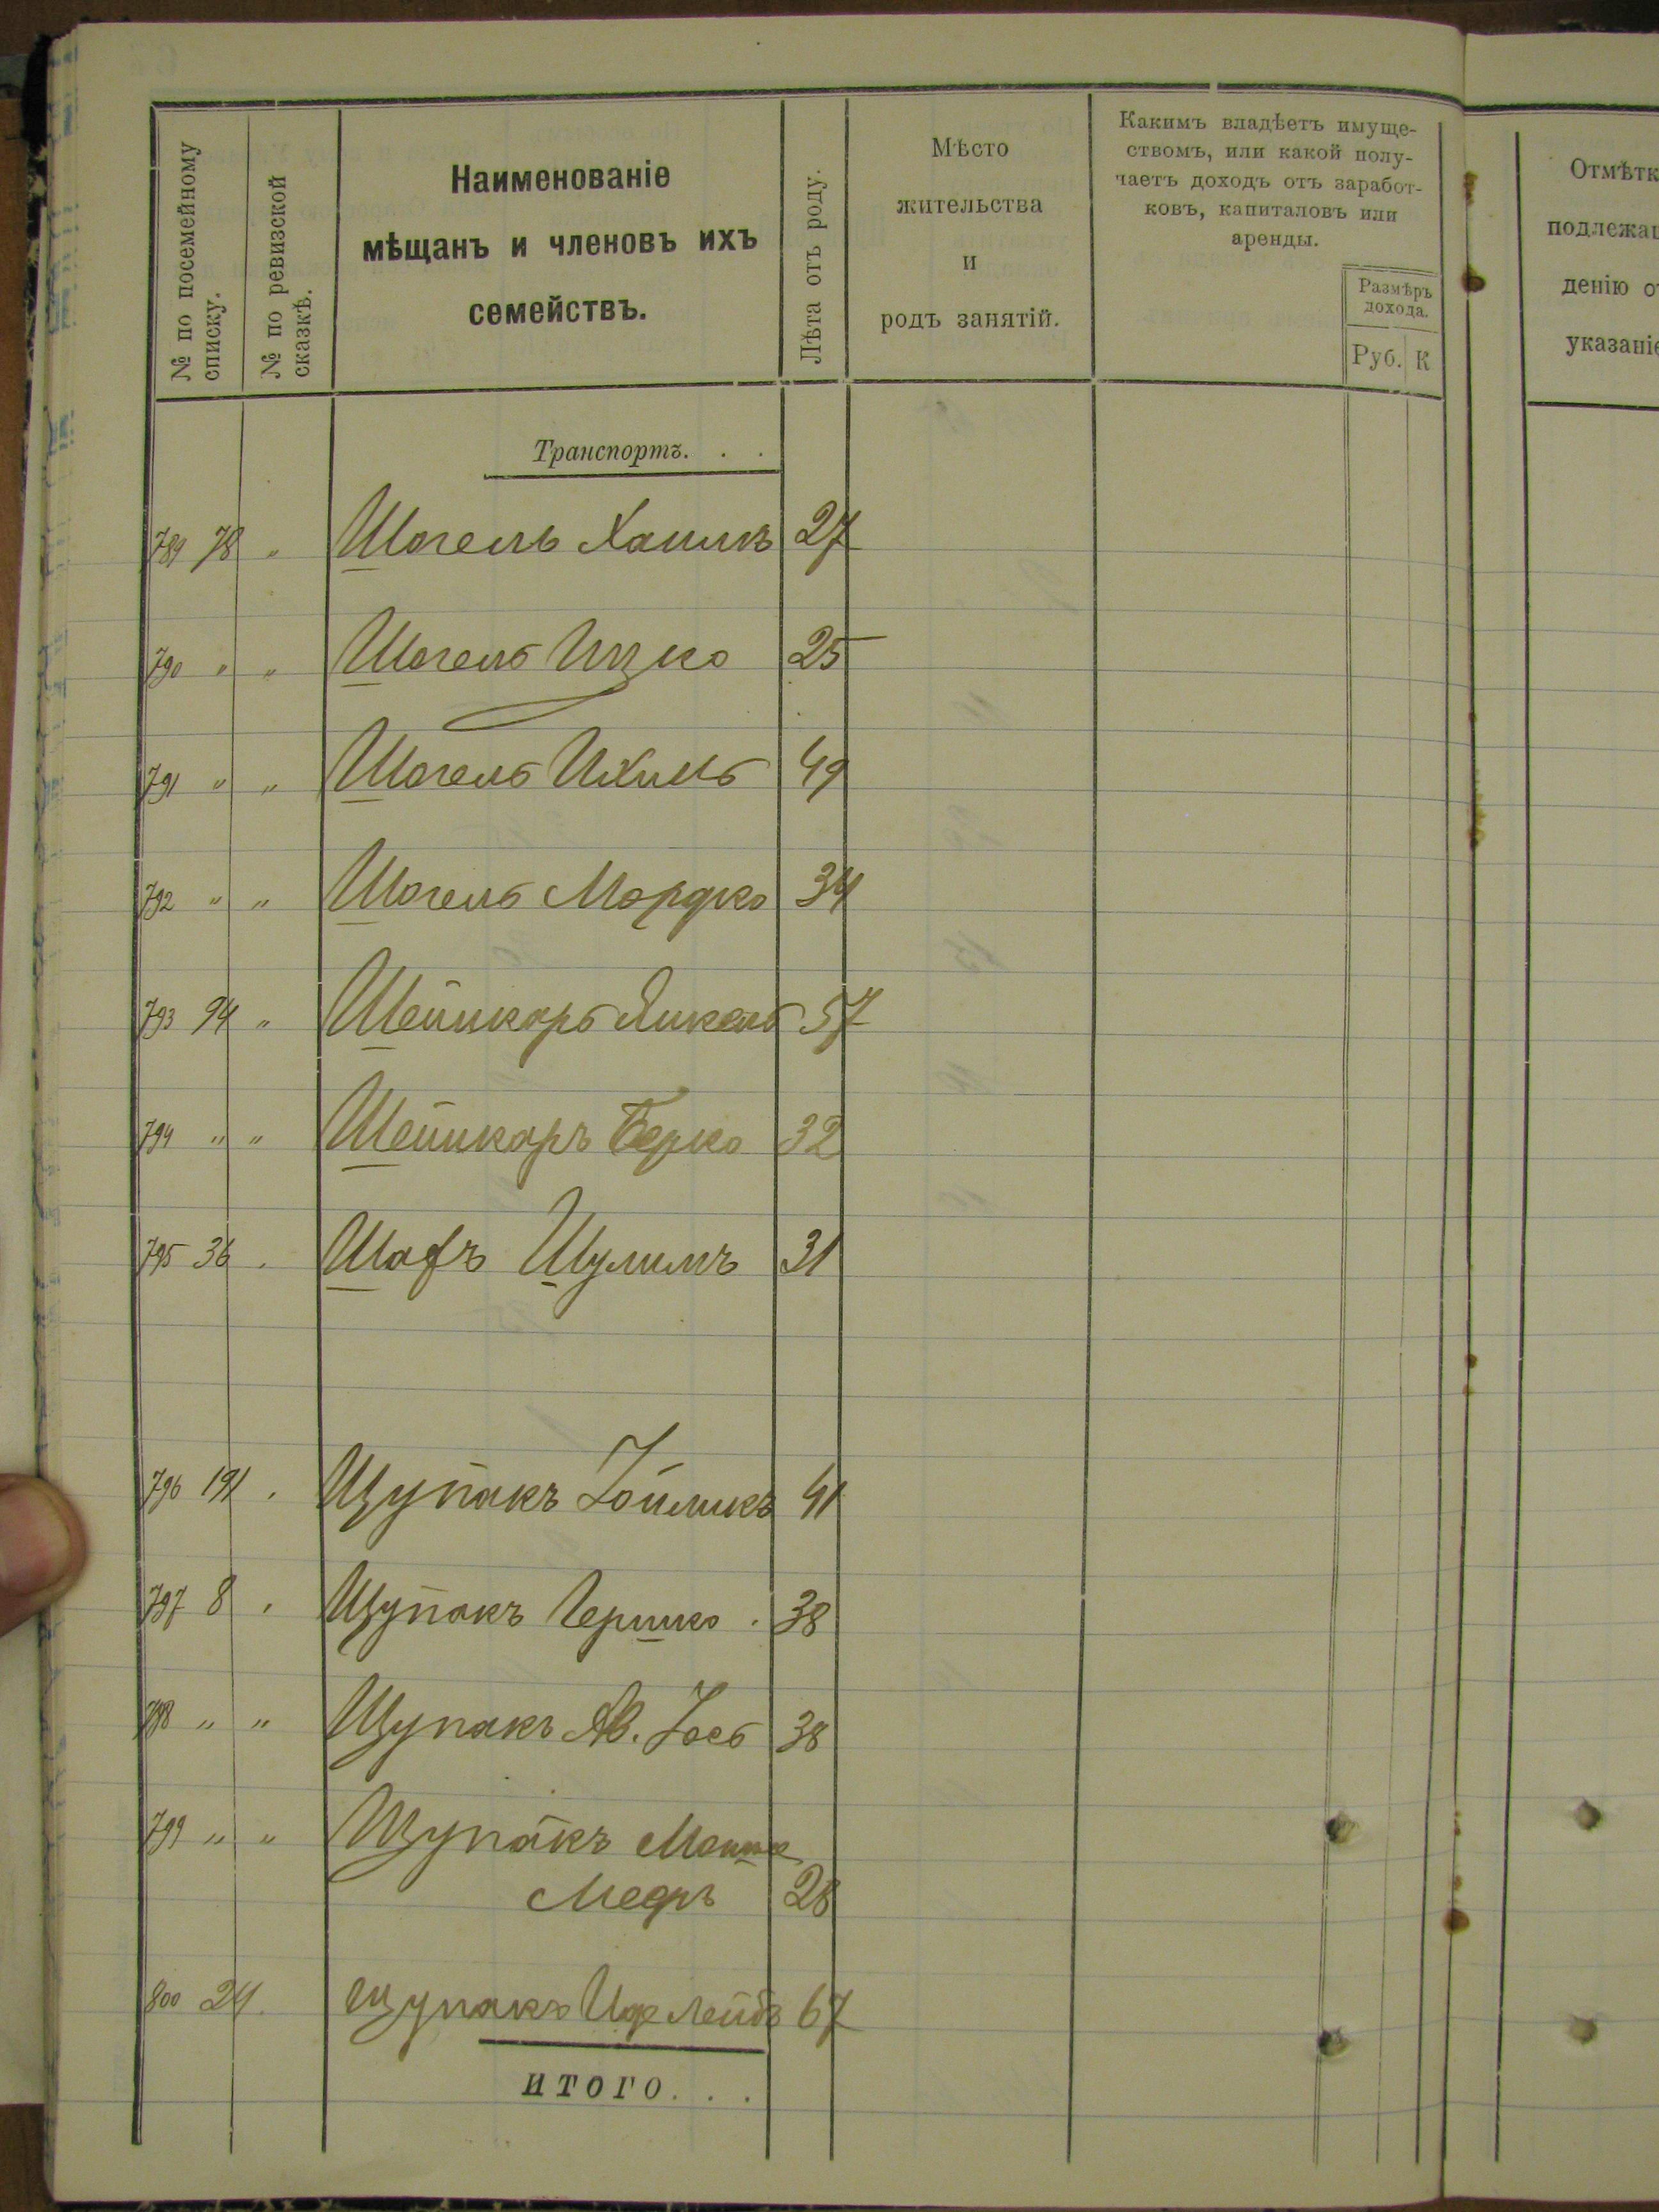 № по посемейному
списку.
№ по ревизской
сказкѣ.
Наименованіе
мѣщанъ и членовъ ихъ
семействъ.
Лѣта отъ роду.
Мѣсто
жительства
и
родъ занятій.
Какимъ владѣетъ имуще-
ствомъ, или какой полу-
чаетъ доходъ отъ заработ-
ковъ, капиталовъ или
аренды.
Размѣръ
дохода.
Руб. К
Отмѣтк
подлежащ
денію от
указаніе
Транспортъ. . .
789 78 " Шогель 27
790 " " Шогель Ицко 25
791 " " Шогель Ихиль 49
792 " " Шогель Мордко 34
793 94 " Шейнкарь Янкель 57
794 " " Шейнкаръ Берко 32
795 36 . Шафъ Шулимъ 31
796 191 . Щупакъ 41
797 8 . Щупакъ Гершко . 38
798 " " Щупакъ Ав. Іось 38
799 " " Щупакъ Мошке
Меръ 28
800 24. Щупакъ Лейбъ 67
ИТОГО. . .